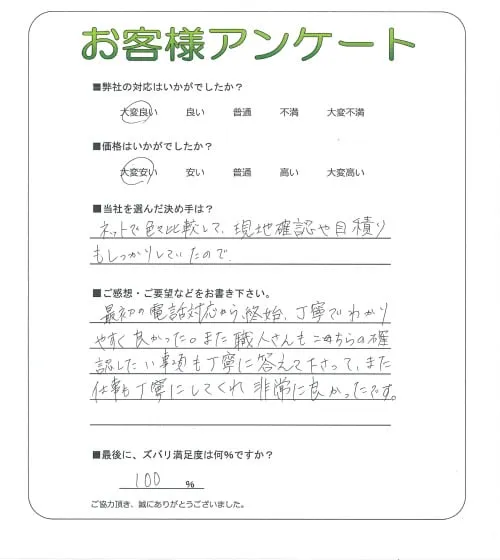 お客様アンケート
■弊社の対応はいかがでしたか？
大変良い 良い 普通 不満 大変不満
■価格はいかがでしたか？
大変安い 安い 普通 高い 大変高い
■当社を選んだ決め手は？
ネットで色々比較して、現地確認や見積り
もしっかりしていたので
■ご感想・ご要望などをお書き下さい。
最初の電話対応から、終始、丁寧でわかり
やすく良かった。また職人さんもこちらの確
認したい事項も丁寧に答えて下さって、また
仕事も丁寧にしてくれ非常に良かったです。
■最後に、ズバリ満足度は何％ですか？
100 %
ご協力頂き、誠にありがとうございました。